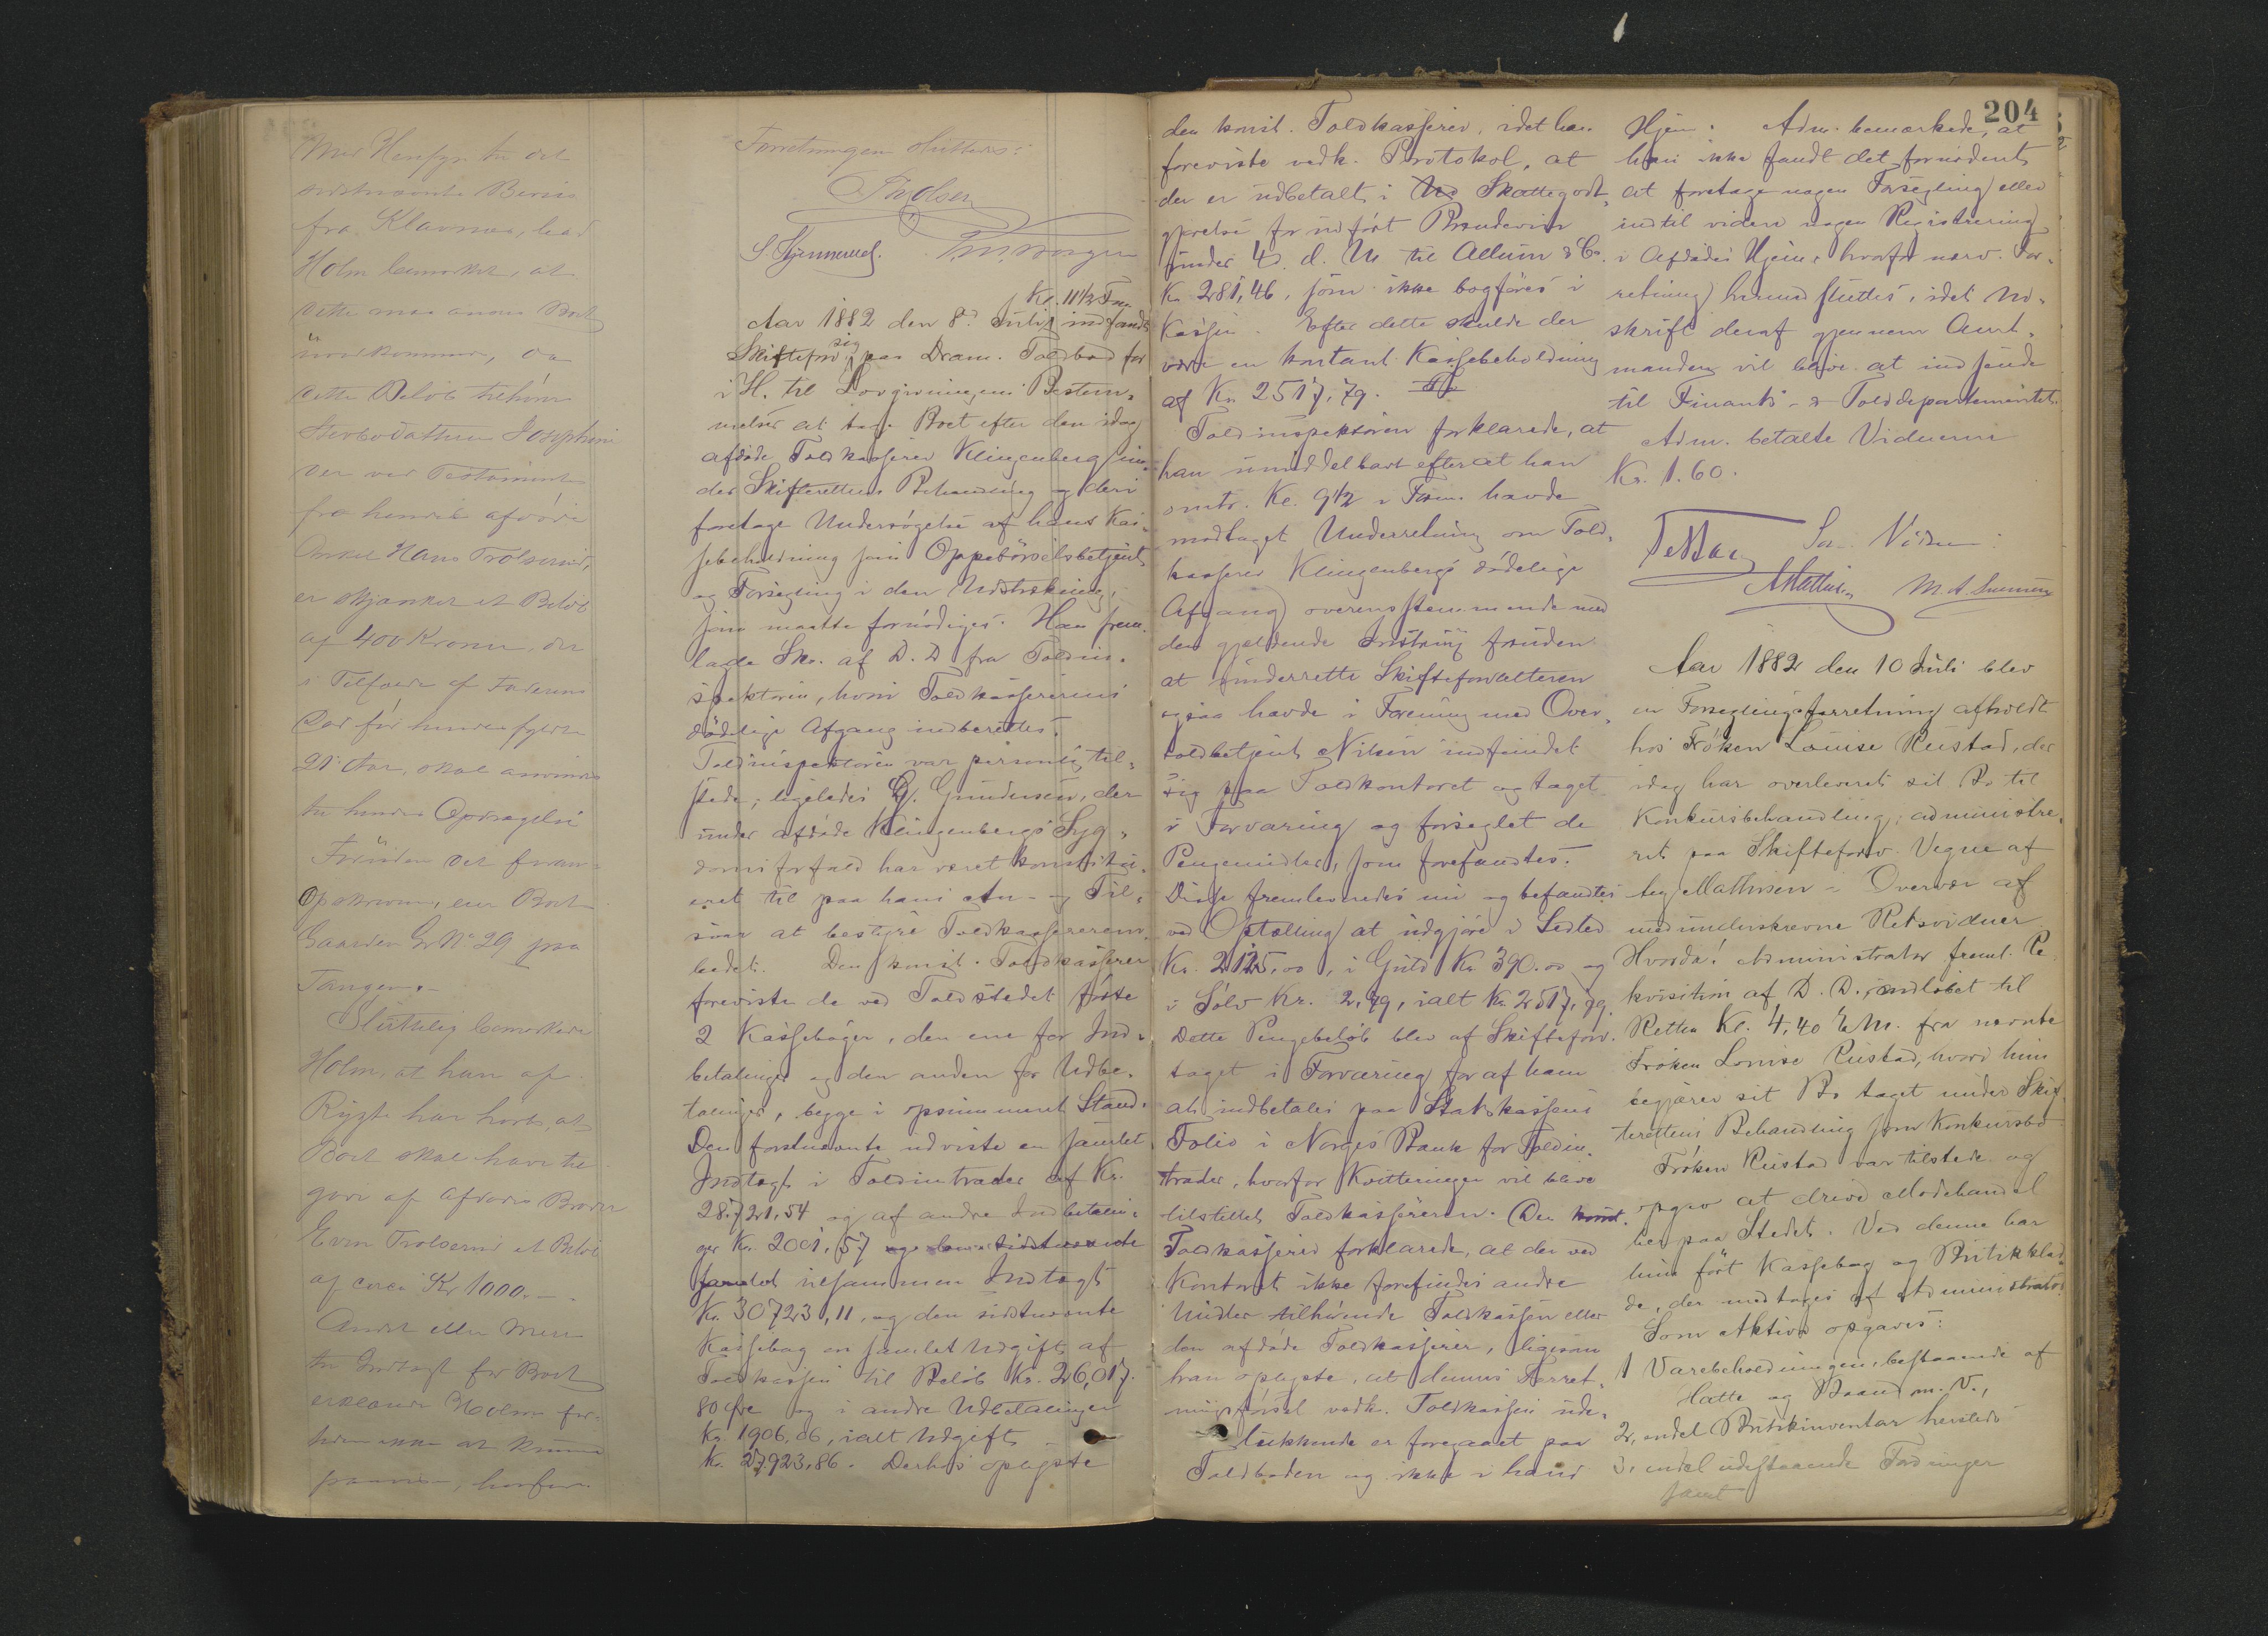 Med Hensyn til det
sidstnævnte Bevis
fra Klavnæs, bad
Holm bemærket, at
dette maa anses Boet
uvedkommende, da
dette Beløb tilhører
Sterbodatteren Josephine
der ved Testament
fra hendes afdøde
Onkel Hans Trolserud,
er skjænket et Beløb
af 400 Kroner, der
i Tilfælde af Faderens
Død før hendes fyldte
21 Aar, skal anvendes
til hendes Opdragelse
Foruden det foran
opskrevne, eier Boet
Gaarden Gr No 29 paa
Tangen.-
Sluttelig bemærkede
Holm, at han af
Rygte har hørt, at
Boet skal have til
gode af Afdødes Broder
Even Trolserud et Beløb
af circa Kr 1000.-
Andet eller mere
til Indtægt for Boet
erklærede Holm for-
tiden ikke at kunne
paavise, hvorfor
Forretningen sluttedes:
S. Stjernerud.
Kl. 11½ Fm
Aar 1882 den 8de Juli indfandt
Skifteforv. sig paa Dram. Toldbod for
i H. til Lovgivningens Bestem-
melser at tage Boet efter den idag
afdøde Toldkasserer Klingenberg un-
der Skifterettens Behandling og deri
foretage Undersøgelse af hans Kas-
sebeholdning som Oppebørselsbetjent
og Forsegling i den Udstrækning,
som maatte fornødiges. Han frem-
lagde Skr. af D. D fra Toldin-
spektøren, hvori Toldkassererens
dødelige Afgang indberettes.
Toldinspektøren var personlig til-
stede; ligeledes G. Gundersen, der
under afdøde Klingenbergs Syg-
domsforfald har været konstitu-
eret til paa hans An- og Til-
svar at bestyre Toldkassererem-
bedet. Den konst. Toldkasserer
foreviste de ved Toldstedet førte
2 Kassebøger, den ene for Ind-
betalinger og den anden for Udbe-
talinger, begge i opsummeret Stand.
Den førstnævnte udviste en samlet
Indtægt i Toldintrader af Kr.
28,721,54 og af andre Indbetalin-
ger Kr. 2001,57 og den sidstnævnte
samlet tilsammen Indtægt
Kr. 30723,11, og den sidstnævnte
Kassebog en samlet Udgift af
Toldkassen til Beløb Kr. 26,017.
80 Øre og i andre Udbetalinger
Kr 1906,06, ialt Udgift
Kr. 27.923,86. Derhos oplyste
204
den konst. Toldkasserer, idet han
foreviste vedk. Protokol, at
der er udbetalt i Skattegodt-
gjørelse for udført Brændevin
under 4 d. M. til Allum & Co.
Kr 281,46, som ikke bogføres i
Kassen. Efter dette skulde der
være en kontant Kassebeholdning
af Kr. 2517,79.
Toldinspektøren forklarede, at
han umiddelbart efter at han
omtr. Kl. 9½ i Form. havde
modtaget Underretning om Told-
kasserer Klingenbergs dødelige
Afgang overensstemmende med
den gjældende Instrux foruden
at underrette Skifteforvalteren
ogsaa havde i Forening med Over-
toldbetjent Nilsen indfundet
sig paa Toldkontoret og taget
i Forvaring og forseglet de
Pengemidler, som forefandtes.
Disse fremleveredes nu og befandtes
ved Optælling at udgjøre i Sedler
Kr. 2125,00, i Guld Kr 390.00 og
i Sølv Kr. 2,79, ialt Kr. 2517,79.
Dette Pengebeløb blev af Skifteforv.
taget i Forvaring for af ham
at indbetales paa Statskassens
Folio i Norges Bank for Toldin-
trader, hvorfor Kvitteringen vil blive
tilstillet Toldkassereren. Den konst.
Toldkasserer forklarede, at der ved
Kontoret ikke forefindes andre
Midler tilhørende Toldkassen eller
den afdøde Toldkasserer, ligesom
han oplyste, at dennes Forret-
ningsførsel vedk. Toldkassen ude-
lukkende er foregaaet paa
Toldboden og ikke i hans
Hjem. Adm. bemærkede, at
han ikke fandt det fornødent
at foretage nogen Forsegling eller
indtil videre nogen Registrering
i Afdødes Hjem, hvorfor nærv. For-
retning hermed sluttes, idet Ud-
skrift deraf gjennem Amt-
manden vil blive at indsende
til Finants- & Tolddepartementet.
Adm. betalte Vidnerne
Kr. 1.60.
Som Vidner:
AMathisen M. A. Svensen
Aar 1882 den 10 Juli blev
en Forseglingsforretning afholdt
hos Frøken Louise Rustad, der
idag har overleveret sit Bo til
Konkursbehandling; administre-
ret paa Skifteforv. Vegne af
Mathisen - Overvær af
medunderskrevne Retsvidner
Hvorda! Administrator freml. Re-
kvisition af D. D., indløbet til
Retten Kl. 4,40 E M. fra nævnte
Frøken Louise Rustad, hvori hun
begjærer sit Bo taget under Skif-
terettens Behandling som Konkursbo
Frøken Rustad var tilstede og
opgav at drive Modehandel
her paa Stedet. Ved denne har
hun ført Kassebog og Butikklad-
de, der modtages af Administrator.
Som Aktiva opgaves:
1 Varebeholdningen, bestaaende af
Hatte og Baand m. V.,
2, endel Butikinventar hersteds
3, endel udestaaende Fordringer
samt